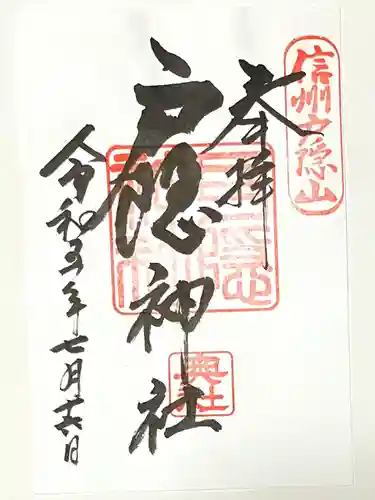 信州戸隠山
奉拝
戸隠神社
奥社
令和五年七月廿六日